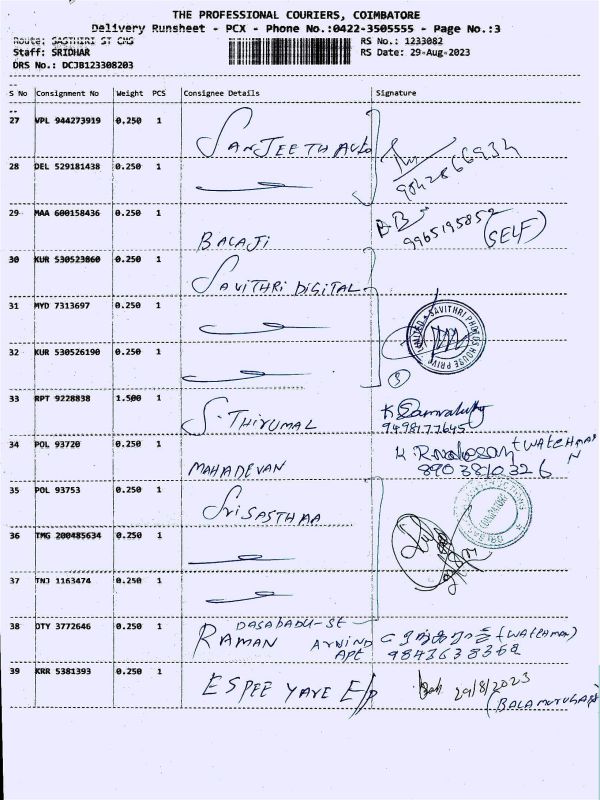 THE PROFESSIONAL COURIERS, COIMBATORE
Delivery Runsheet - PCX - Phone No.:0422-3505555 - Page No.:3
Route: SASTHIRI ST CMS
RS No.: 1233082
Staff: SRIDHAR
RS Date: 29-Aug-2023
DRS No.: DCJB123308203
S No Consignment No Weight PCS Consignee Details Signature
27 VPL 944273919 0.250 1 SANJEETH AUTO
28 DEL 529181438 0.250 1
29 MAA 600158436 0.250 1 BALAJI 9965195852 (SELF)
30 KUR 530523860 0.250 1 SAVITHRI DIGITAL
31 MYD 7313697 0.250 1
SAVITHRI PHOTOS HOUSE PRIVATE LIMITED
32 KUR 530526190 0.250 1
33 RPT 9228838 1.500 1 S. THIRUMAL
9498177645
34 POL 93720 0.250 1 MAHADEVAN (WATCHMAN
8903810326
35 POL 93753 0.250 1 SRI SASTHAA
36 TMG 200485634 0.250 1
37 TNJ 1163474 0.250 1
38 OTY 3772646 0.250 1 RAMAN DASABADU-ST ARVIND APT (WATCHMAN)
9843638368
39 KRR 5381393 0.250 1 ESPEE YAVE E/P 29/8/2023